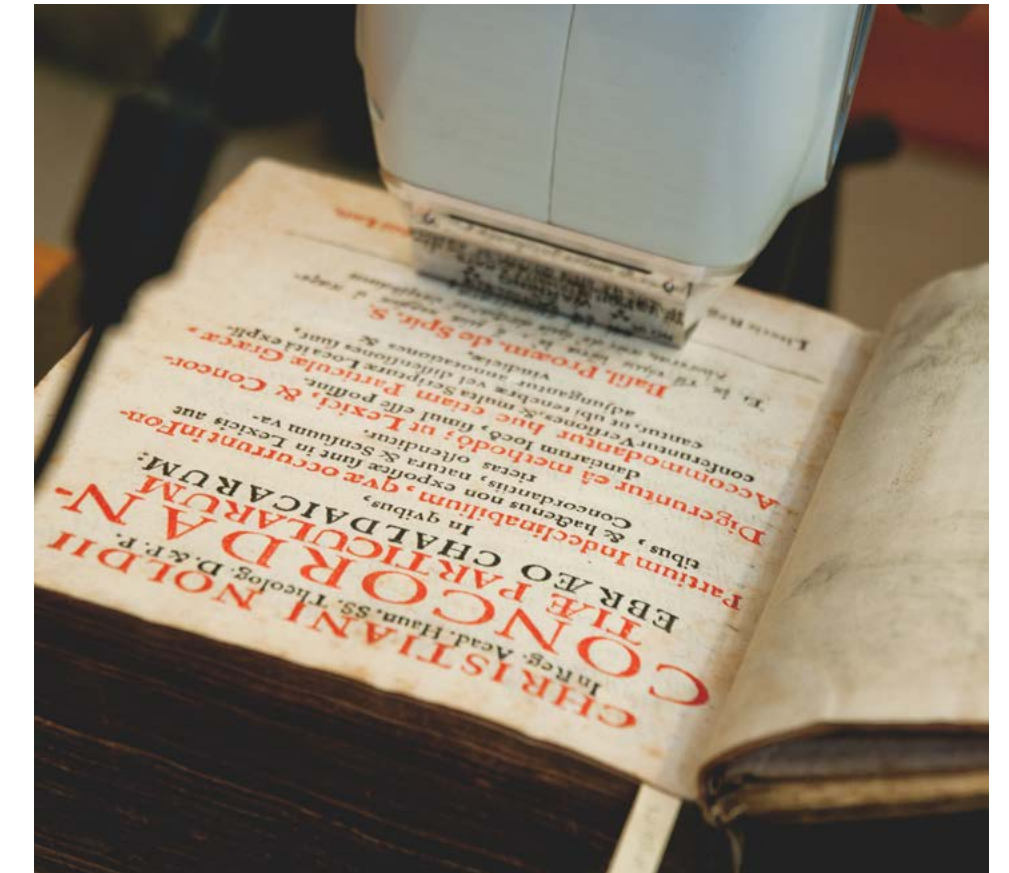 CHRISTIANI NOLDII
In Reg. Acad. Haun. SS. Theolog. D. & P. P.
CONCORDAN-
TIÆ PARTICULARUM
EBRÆO CHALDAICARUM:
In qvibus,
Partium Indeclinabilium, qvæ occurrunt in Fon-
tibus, & hactenus non expoſitæ ſunt in Lexicis aut
Concordantiis, natura & ſenſuum va-
rietas oſtenditur.
Digeruntur eâ methodô; ut Lexici, & Concor-
dantiarum locô, ſimul eſſe poſſint.
Accommodantur huc etiam Particulæ Græcæ,
conferantur Verſiones, & multa Scripturæ Loca ita expli-
cantur, ut, ubi tenebræ vel diſſenſiones ſunt,
adjungantur annotationes &
vindiciæ.
Baſil. Proœm. de Spir. S.